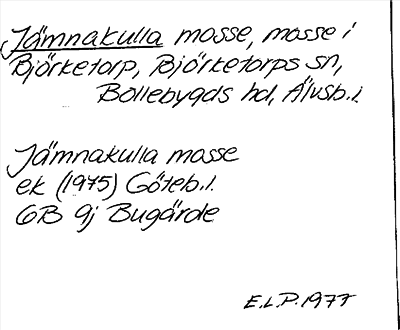 Jämnakulla mosse, mosse i
Björketorp, Björketorps sn,
Bollebygds hd, Älvsb.l.
Jämnakulla mosse
ek (1975) Göteb.l.
6B 9j Bugärde
E.L.P. 1977